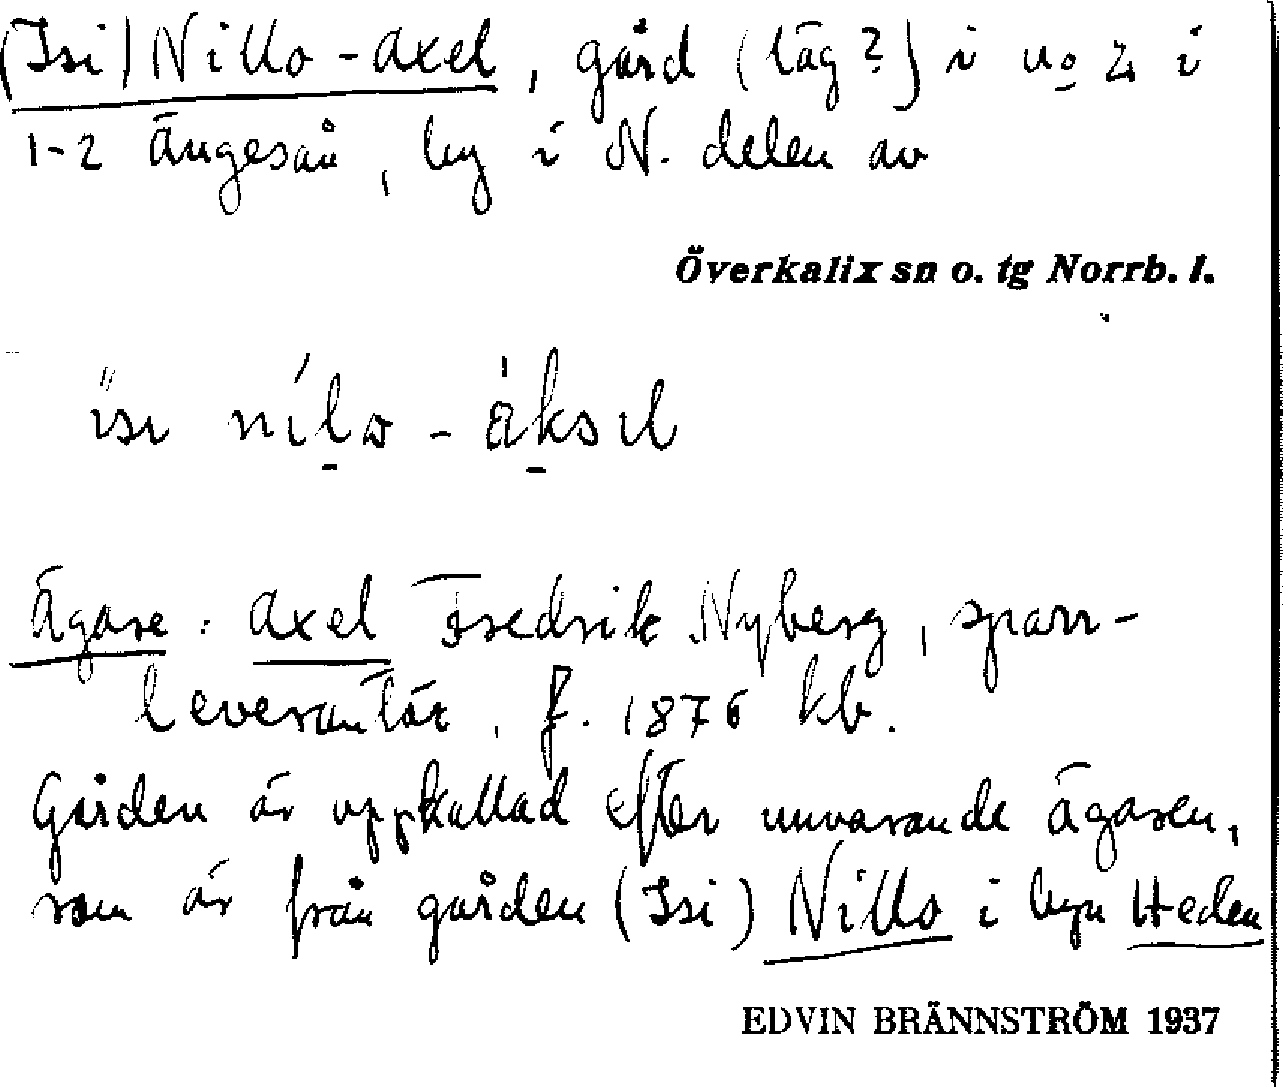 (Isi) Nillo-Axel, gård (låg?) i no 2 i
1-2 Ängeså, by i N. delen av
Överkalix sn o. tg Norrb. l.
Ägare: Axel Fredrik Nyberg, sparr-
leverantör, f. 1876 kb.
Gården är uppkallad efter nuvarande ägaren,
som är från gården (Isi) Nillo i byn Heden
EDVIN BRÄNNSTRÖM 1937